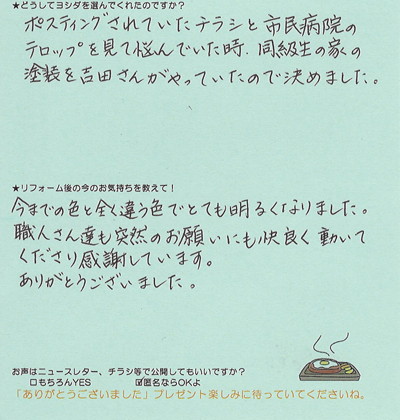 ★どうしてヨシダを選んでくれたのですか？
ポスティングされていたチラシと市民病院の
テロップを見て悩んでいた時、同級生の家の
塗装を吉田さんがやっていたので決めました。
★リフォーム後の今のお気持ちを教えて！
今までの色と全く違う色でとても明るくなりました。
職人さん達も突然のお願いにも快良く動いて
くださり感謝しています。
ありがとうございました。
お声はニュースレター、チラシ等で公開してもいいですか？
□もちろんYES ☑匿名ならOKよ
「ありがとうございました」プレゼント楽しみに待っていてくださいね。